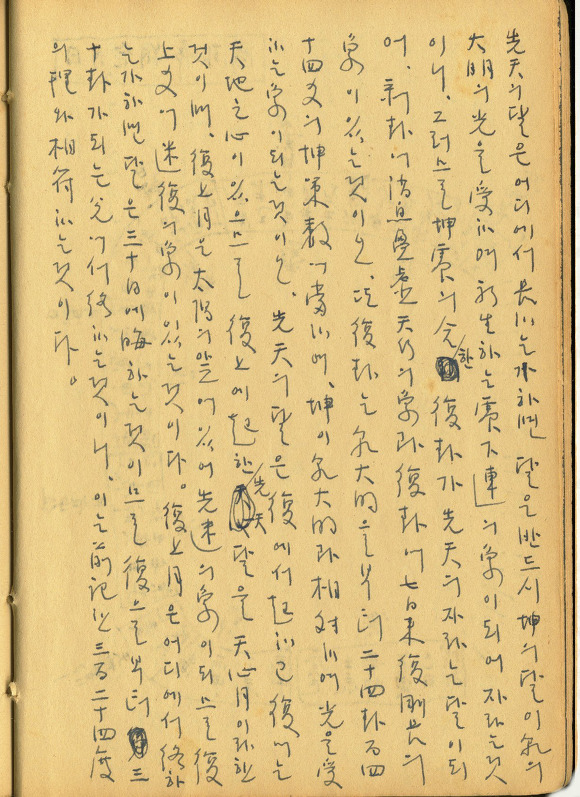 先天의 달은 어디에서 長하는가 하면 달은 반드시 坤의 달이 乾의
大明의 光을 受하여 新生하는 震下連의 象이 되어 자라는 것
이니, 그러므로 坤震의 合한 復卦가 先天의 자라는 달이 되
어, 剝卦에 消息盈虛 天行의 象과 復卦에 七日來復 剛長의
象이 있는 것이오, 또 復卦는 乾大明으로부터 二十四卦 百四
十四爻의 坤策數에 當하여, 坤이 乾大明과 相對하여 光을 受
하는 象이 되는 것이오, 先天의 달은 復에서 起하고 復에는
天地之心이 있으므로 復上에 起한 先天달을 天心月이라 한
것이며, 復上月은 太陽의 앞에 있어 先迷의 象이 되므로 復
上爻에 迷復의 象이 있는 것이다。 復上月은 어디에서 終하
는가 하면 달은 三十日에 晦하는 것이므로 復으로부터 三
十卦가 되는 兌에서 終하는 것이니, 이는 前記한 三百二十四度
의 理와 相符하는 것이다。